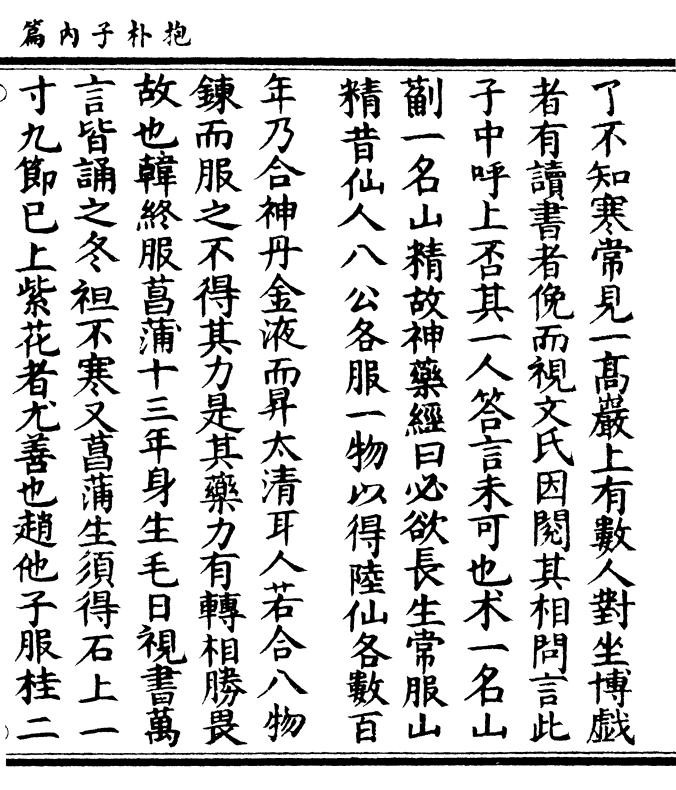 抱朴子內篇
了不知寒常見一高巖上有數人對坐博戲
者有讀書者俛而視文氏因聞其相問言此
子中呼上否其一人答言未可也术一名山
薊一名山精故神藥經曰必欲長生常服山
精昔仙人八公各服一物以得陸仙各數百
年乃合神丹金液而昇太清耳人若合八物
鍊而服之不得其力是其藥力有轉相勝畏
故也韓終服菖蒲十三年身生毛日視書萬
言皆誦之冬袒不寒又菖蒲生須得石上一
寸九節已上紫花者尤善也趙他子服桂二